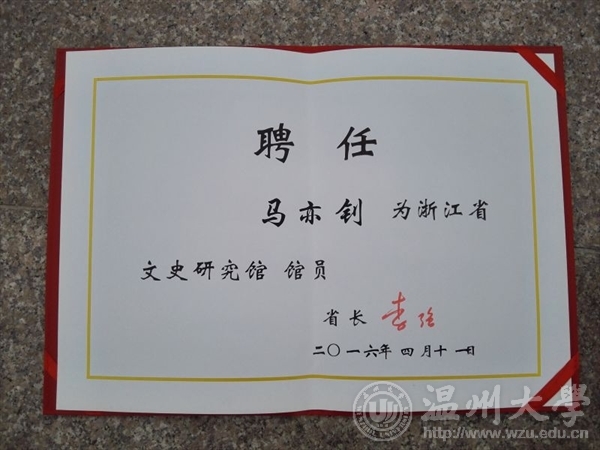 聘任
马亦钊 为浙江省
文史研究馆 馆员
省长 李强
二〇一六年四月十一日
温州大学
http://www.wzu.edu.cn